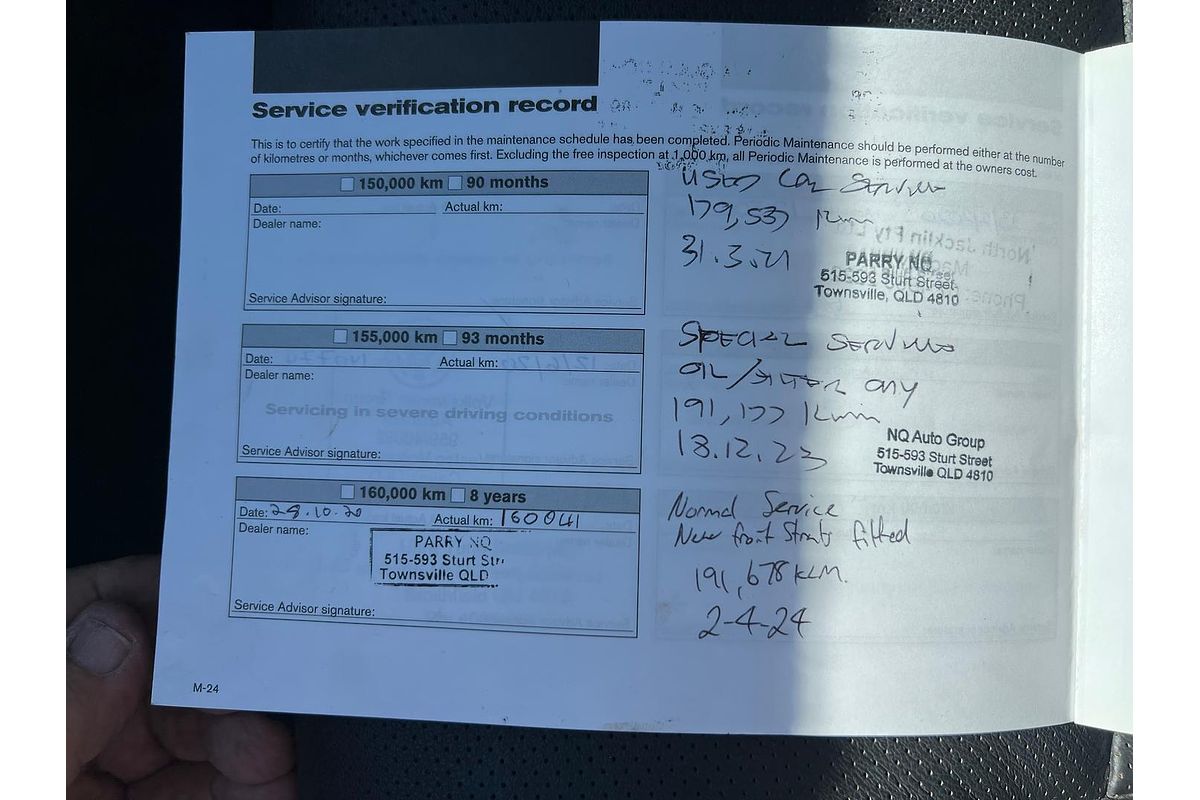 Service verification record
This is to certify that the work specified in the maintenance schedule has been completed. Periodic Maintenance should be performed either at the number
of kilometres or months, whichever comes first. Excluding the free inspection at 1,000 km, all Periodic Maintenance is performed at the owners cost.
150,000 km 90 months
Date: Actual km:
Dealer name:
Service Advisor signature:
155,000 km 93 months
Date: Actual km:
Dealer name:
Servicing in severe driving conditions
Service Advisor signature:
160,000 km 8 years
Date: 28.10.20 Actual km: 160041
Dealer name:
PARRY NQ
515-593 Sturt Str
Townsville QLD
Service Advisor signature:
M-24
USED CAR SERVICE
179,537 Km
31.3.21
PARRY NQ
515-593 Sturt Street
Townsville, QLD 4810
SPECIAL SERVICE
OIL/FILTER ONLY
191,177 Km
18.12.23
NQ Auto Group
515-593 Sturt Street
Townsville QLD 4810
Normal Service
New front Struts fitted
191,678 KLM.
2-4-24